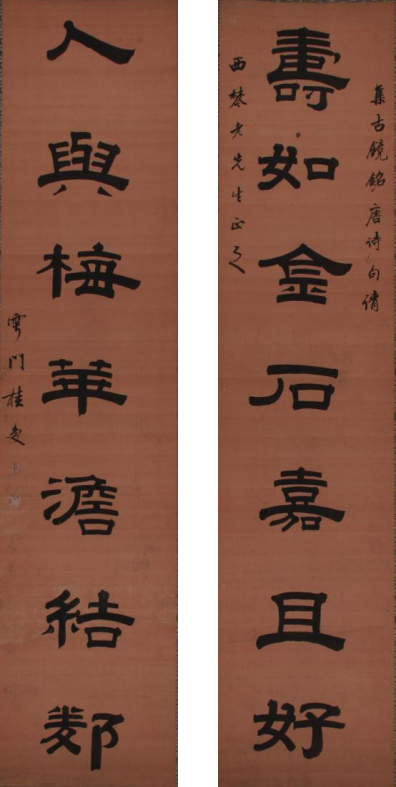 集古鏡銘唐詩句請
壽如金石嘉且好
西老先生正之
人與梅華澹結鄰
雩門桂馥